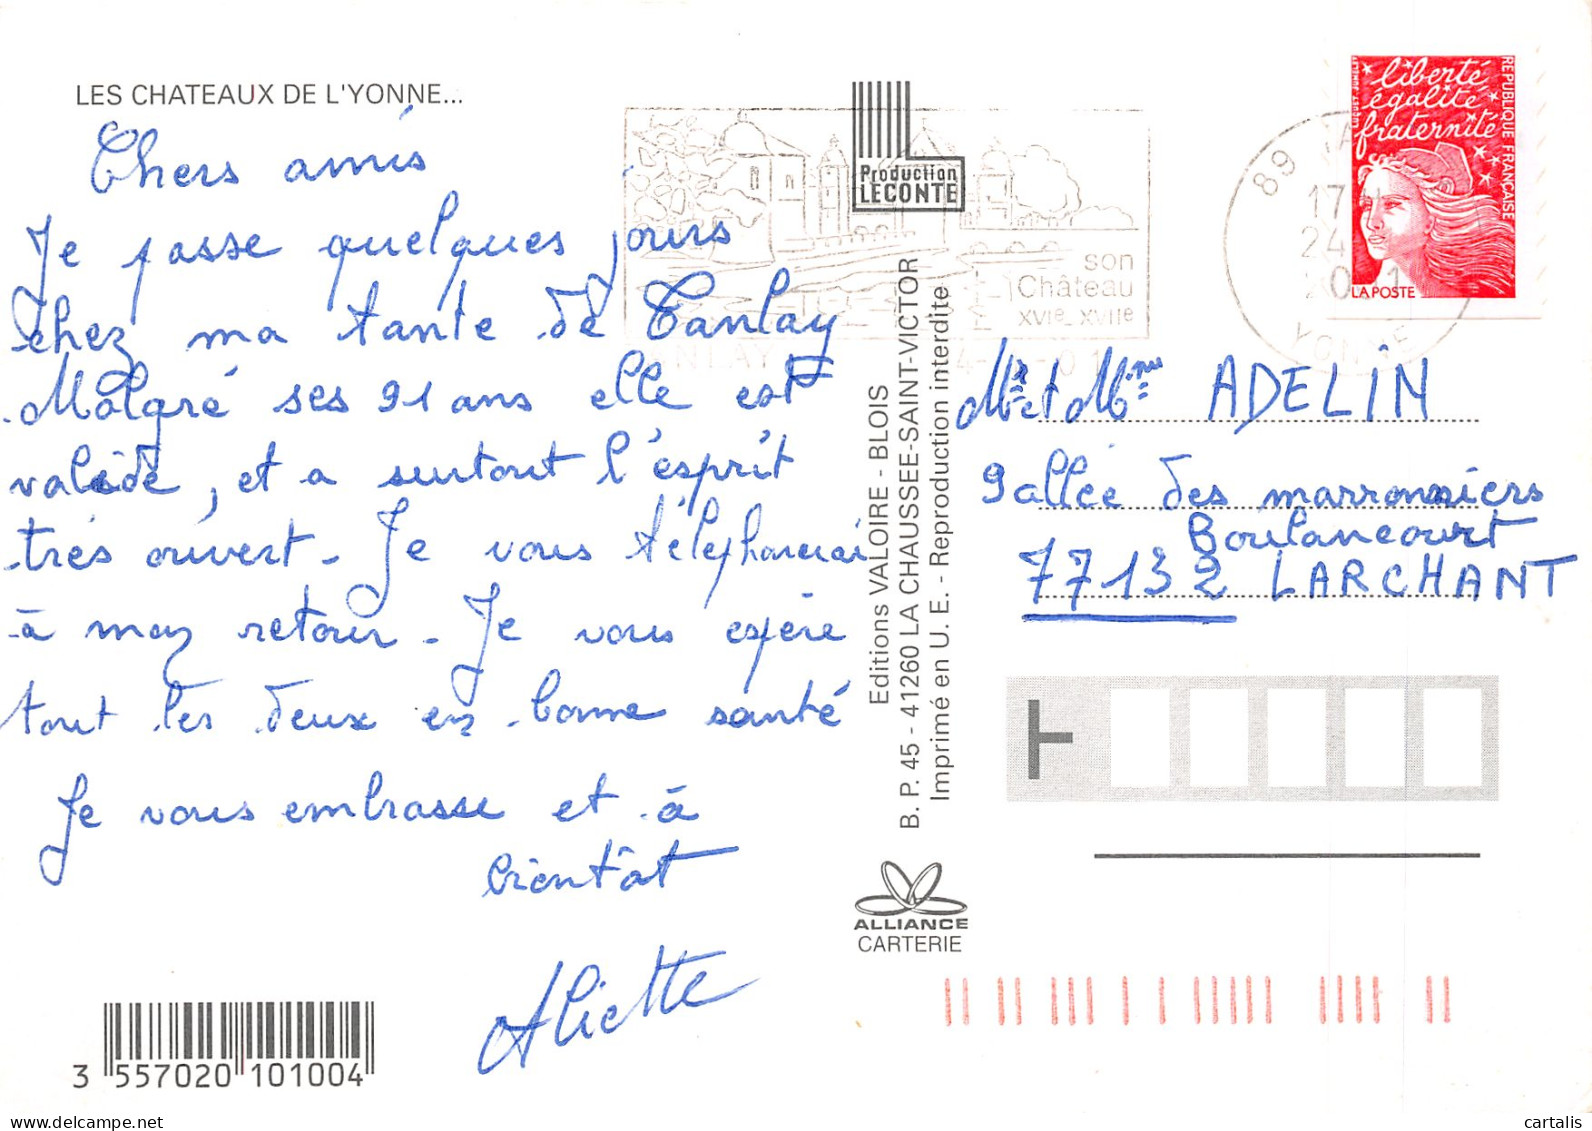 LES CHATEAUX DE L'YONNE...
Chers amis
Je passe quelques jours
chez ma tante de Tanlay
Malgré ses 91 ans elle est
valide, et a surtout l'esprit
très ouvert. Je vous téléphonerai
à moy retour. Je vous espère
tout les deux en bonne santé
Je vous embrasse et à
bientôt
Aliette
3 557020 101004
Production
LECONTE
son
Château
XVIe_XVIIe
Editions VALOIRE - BLOIS
B. P. 45 - 41260 LA CHAUSSEE-SAINT-VICTOR
Imprimé en U. E. - Reproduction interdite
ALLIANCE
CARTERIE
liberté
égalité
fraternité
REPUBLIQUE FRANÇAISE
LA POSTE
89
17
24
YONNE
Mr et Mme ADELIN
9 allée des marronniers
Boulancourt
77132 LARCHANT
www.delcampe.net
cartalis